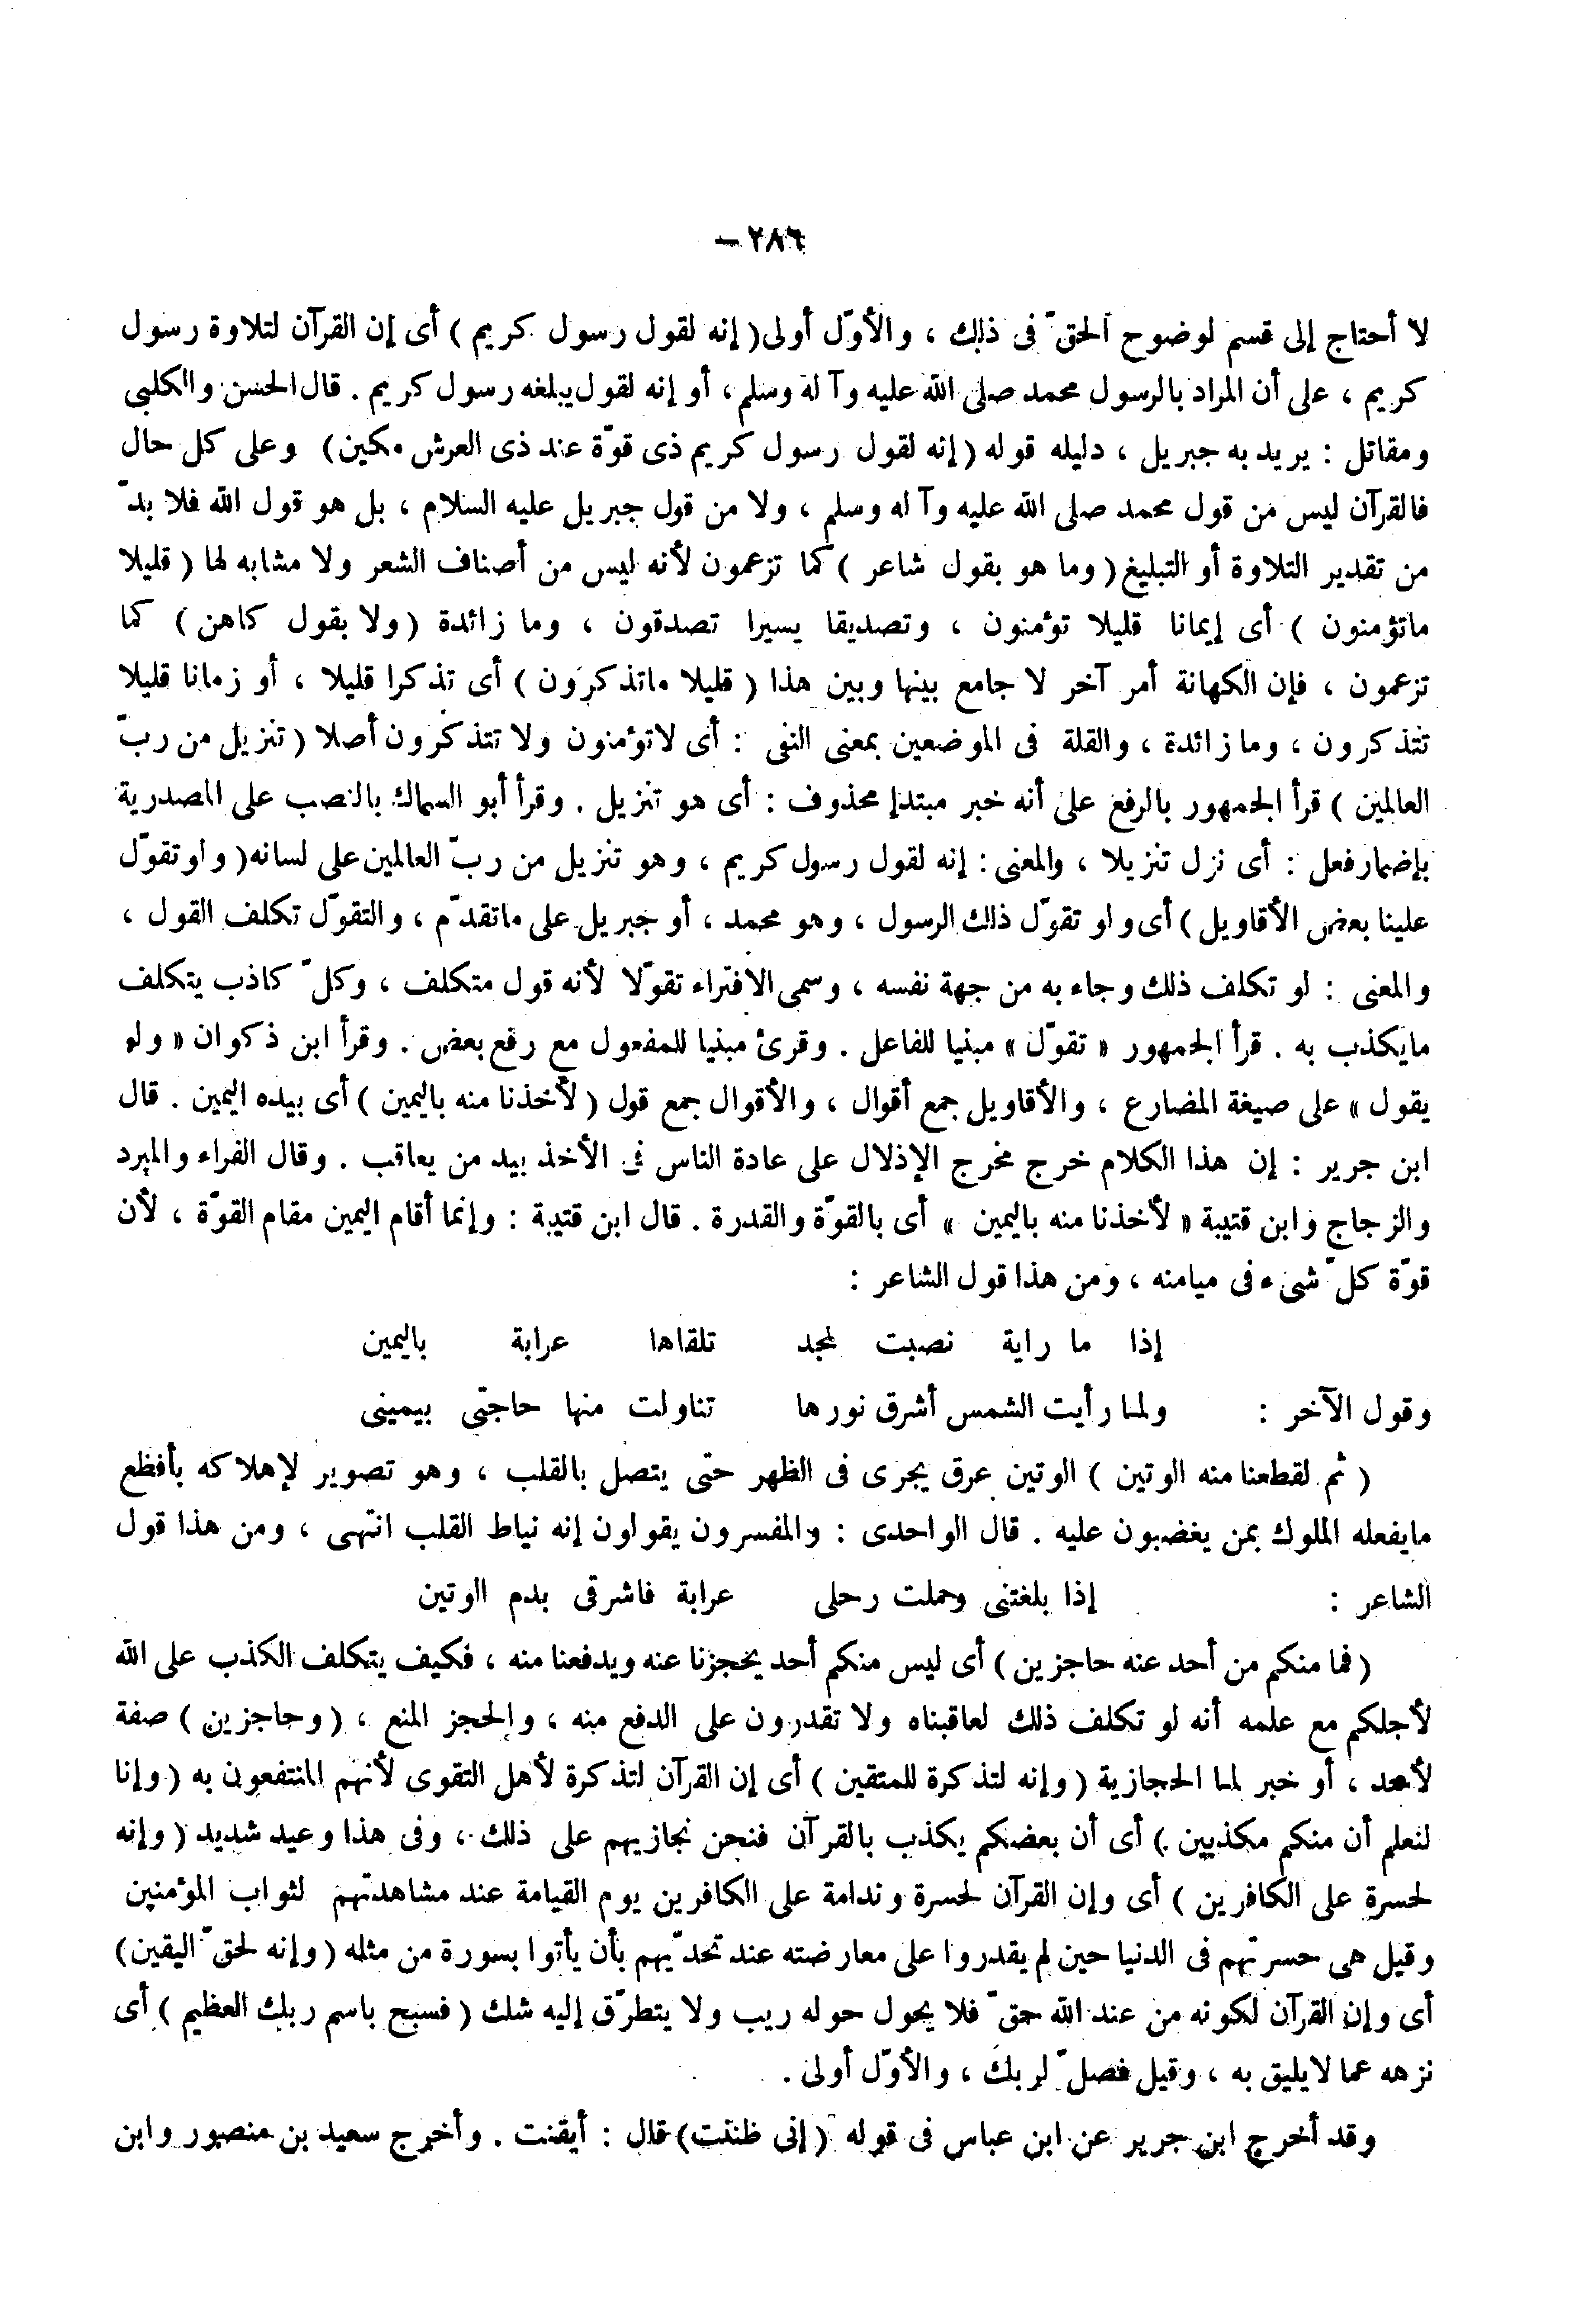 ٢٨٦ —
لا أحتاج إلى قسم لوضوح الحقّ فى ذلك ، والأوّل أولى ( إنه لقول رسول كريم ) أى إن القرآن لتلاوة رسول
كريم ، على أن المراد بالرسول محمد صلى الله عليه وآله وسلم ، أو إنه لقول يبلغه رسول كريم . قال الحسن والكلبى
ومقاتل : يريد به جبريل ، دليله قوله ( إنه لقول رسول كريم ذى قوّة عند ذى العرش مكين ) وعلى كل حال
فالقرآن ليس من قول محمد صلى الله عليه وآله وسلم ، ولا من قول جبريل عليه السلام ، بل هو قول الله فلا بدّ
من تقدير التلاوة أو التبليغ ( وما هو بقول شاعر ) كما تزعمون لأنه ليس من أصناف الشعر ولا مشابه لها ( قليلا
ماتؤمنون ) أى إيمانا قليلا تؤمنون ، وتصديقا يسيرا تصدقون ، وما زائدة ( ولا بقول كاهن ) كما
تزعمون ، فإن الكهانة أمر آخر لا جامع بينها وبين هذا ( قليلا ماتذكرون ) أى تذكرا قليلا ، أو زمانا قليلا
تتذكرون ، وما زائدة ، والقلة فى الموضعين بمعنى النفى : أى لاتؤمنون ولا تتذكرون أصلا ( تنزيل من ربّ
العالمين ) قرأ الجمهور بالرفع على أنه خبر مبتدإ محذوف : أى هو تنزيل . وقرأ أبو السماك بالنصب على المصدرية
بإضمار فعل : أى نزل تنزيلا ، والمعنى : إنه لقول رسول كريم ، وهو تنزيل من ربّ العالمين على لسانه ( ولو تقوّل
علينا بعض الأقاويل ) أى ولو تقوّل ذلك الرسول ، وهو محمد ، أو جبريل على ماتقدّم ، والتقوّل تكلف القول ،
والمعنى : لو تكلف ذلك وجاء به من جهة نفسه ، وسمى الافتراء تقوّلا لأنه قول متكلف ، وكلّ كاذب يتكلف
مايكذب به . قرأ الجمهور « تقوّل » مبنيا للفاعل . وقرئ مبنيا للمفعول مع رفع بعض . وقرأ ابن ذكوان « ولو
يقول » على صيغة المضارع ، والأقاويل جمع أقوال ، والأقوال جمع قول ( لأخذنا منه باليمين ) أى بيده اليمين . قال
ابن جرير : إن هذا الكلام خرج مخرج الإذلال على عادة الناس فى الأخذ بيد من يعاقب . وقال الفراء والمبرد
والزجاج وابن قتيبة « لأخذنا منه باليمين » أى بالقوّة والقدرة . قال ابن قتيبة : وإنما أقام اليمين مقام القوّة ، لأن
قوّة كلّ شىء فى ميامنه ، ومن هذا قول الشاعر :
إذا ما راية نصبت لمجد تلقاها عرابة باليمين
وقول الآخر : ولما رأيت الشمس أشرق نورها تناولت منها حاجتى بيمينى
( ثم لقطعنا منه الوتين ) الوتين عرق يجرى فى الظهر حتى يتصل بالقلب ، وهو تصوير لإهلاكه بأفظع
مايفعله الملوك بمن يغضبون عليه . قال الواحدى : والمفسرون يقولون إنه نياط القلب انتهى ، ومن هذا قول
الشاعر : إذا بلغتنى وحملت رحلى عرابة فاشرقى بدم الوتين
( فما منكم من أحد عنه حاجزين ) أى ليس منكم أحد يحجزنا عنه ويدفعنا منه ، فكيف يتكلف الكذب على الله
لأجلكم مع علمه أنه لو تكلف ذلك لعاقبناه ولا تقدرون على الدفع منه ، والحجز المنع ، ( وحاجزين ) صفة
لأحد ، أو خبر لما الحجازية ( وإنه لتذكرة للمتقين ) أى إن القرآن لتذكرة لأهل التقوى لأنهم المنتفعون به ( وإنا
لنعلم أن منكم مكذبين ) أى أن بعضكم يكذب بالقرآن فنحن نجازيهم على ذلك ، وفى هذا وعيد شديد ( وإنه
لحسرة على الكافرين ) أى وإن القرآن لحسرة وندامة على الكافرين يوم القيامة عند مشاهدتهم لثواب المؤمنين
وقيل هى حسرتهم فى الدنيا حين لم يقدروا على معارضته عند تحدّيهم بأن يأتوا بسورة من مثله ( وإنه لحقّ اليقين )
أى وإن القرآن لكونه من عند الله حقّ فلا يحول حوله ريب ولا يتطرّق إليه شك ( فسبح باسم ربك العظيم ) أى
نزهه عما لايليق به ، وقيل فصلّ لربك ، والأوّل أولى .
وقد أخرج ابن جرير عن ابن عباس فى قوله ( إنى ظننت ) قال : أيقنت . وأخرج سعيد بن منصور وابن